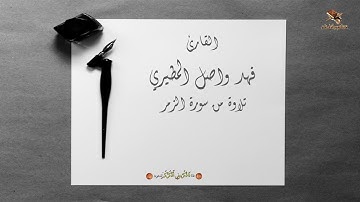 القارئ
فهد واصل المطيري
تلاوة من سورة الزمر